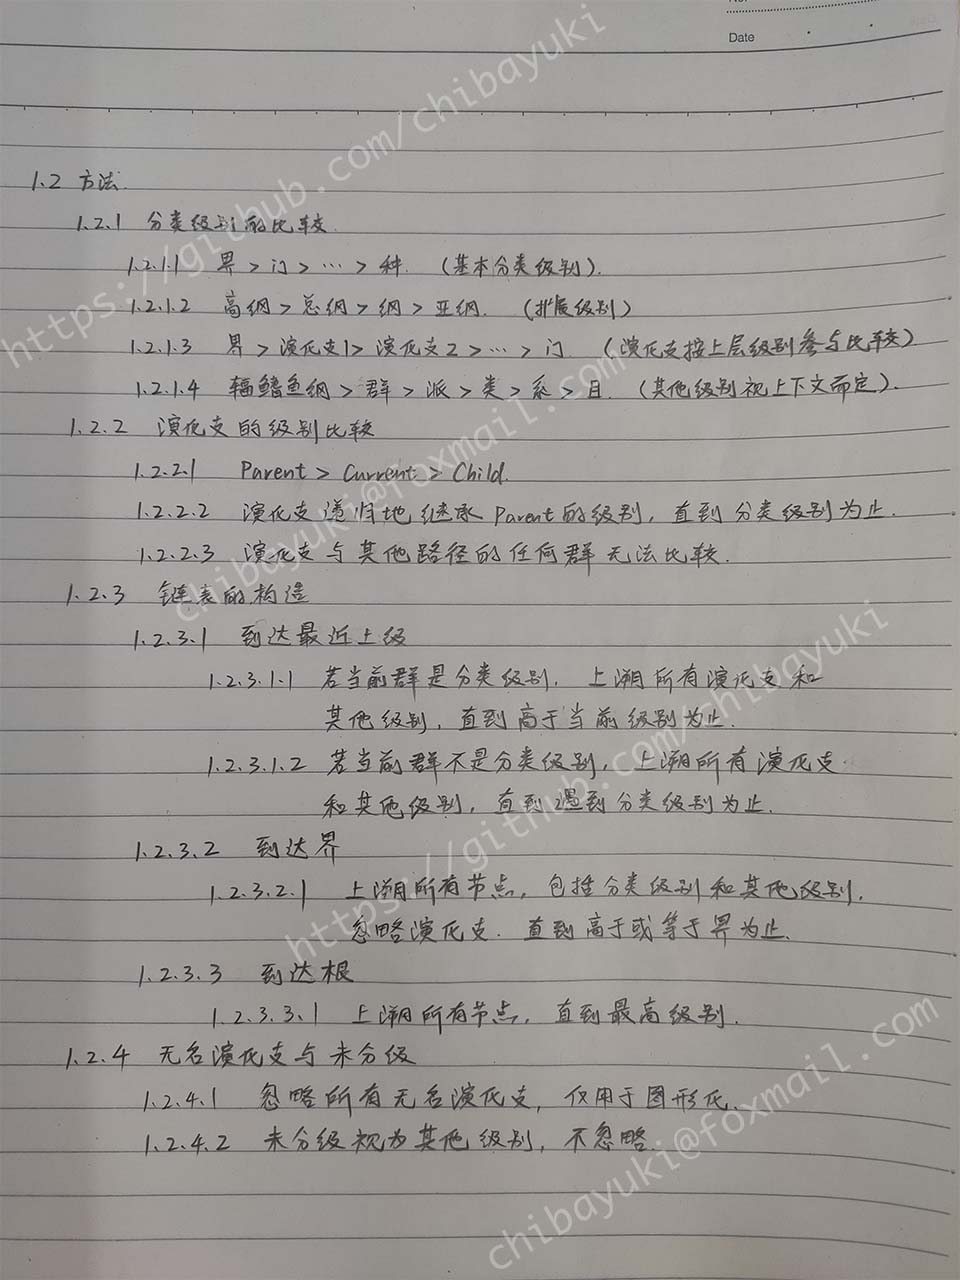 No
Date
1.2 方法.
1.2.1 分类级别的比较.
1.2.1.1 界 > 门 > … > 种. (基本分类级别).
1.2.1.2 高纲 > 总纲 > 纲 > 亚纲. (扩展级别)
1.2.1.3 界 > 演化支1 > 演化支2 > … > 门 (演化支按上层级别参与比较)
1.2.1.4 辐鳍鱼纲 > 群 > 派 > 类 > 系 > 目. (其他级别视上下文而定).
1.2.2 演化支的级别比较
1.2.2.1 Parent > Current > Child.
1.2.2.2 演化支递归地继承Parent的级别, 直到分类级别为止.
1.2.2.3 演化支与其他路径的任何群无法比较.
1.2.3 链表的构造
1.2.3.1 到达最近上级
1.2.3.1.1 若当前群是分类级别, 上溯所有演化支和
其他级别, 直到高于当前级别为止.
1.2.3.1.2 若当前群不是分类级别, 上溯所有演化支
和其他级别, 直到遇到分类级别为止.
1.2.3.2 到达界
1.2.3.2.1 上溯所有节点, 包括分类级别和其他级别,
忽略演化支. 直到高于或等于界为止.
1.2.3.3 到达根
1.2.3.3.1 上溯所有节点, 直到最高级别.
1.2.4 无名演化支与未分级
1.2.4.1 忽略所有无名演化支, 仅用于图形化.
1.2.4.2 未分级视为其他级别, 不忽略.
https://github.com/chibayuki
chibayuki@foxmail.com
https://github.com/chibayuki
chibayuki@foxmail.com